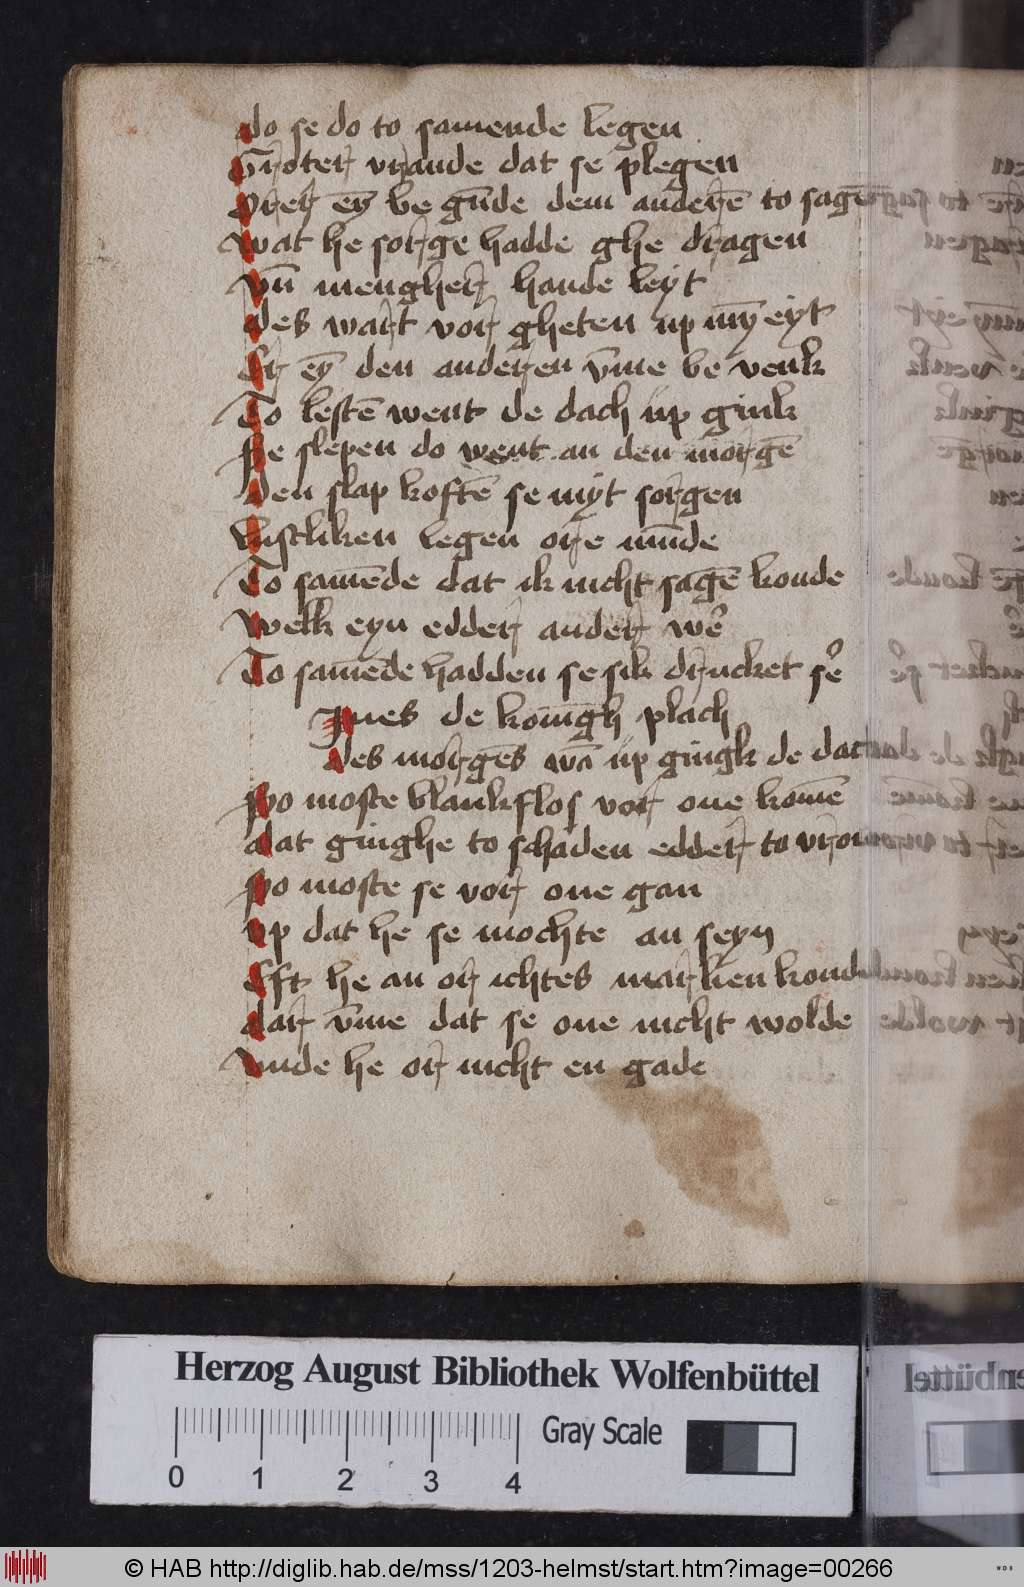 do se do to samende legen
Groter vrande dat se plegen
Orer eȳ be gūde dem anderē to sagē
wat he sorge hadde ghe dragen
vn̄ mengher hande leyt
des wart vor gheten up mȳ eyt
Er eȳ den anderen v̄me be venk
To lestē went de dach up gink
Se slepen do went an den morgē
den slap koftē se myt sorgen
lustliken legen ore mūde
To samēde dat ik nicht sagē konde
welk eyn edder ander we͛
To samēde hadden se sik drucket se͛
Ines de konīgh plach
des morgēs wā up gingk de dach
So moste blankflos vor one komē
dat ginghe to schaden edder to
So moste se vor one gan
up dat he se mochte an seyn
Eft he an or ichtes marken konde
dar v̄me dat se one nicht wolde
vnde he or nicht en gade
Herzog August Bibliothek Wolfenbüttel
Gray Scale
0 1 2 3 4
© HAB http://diglib.hab.de/mss/1203-helmst/start.htm?image=00266